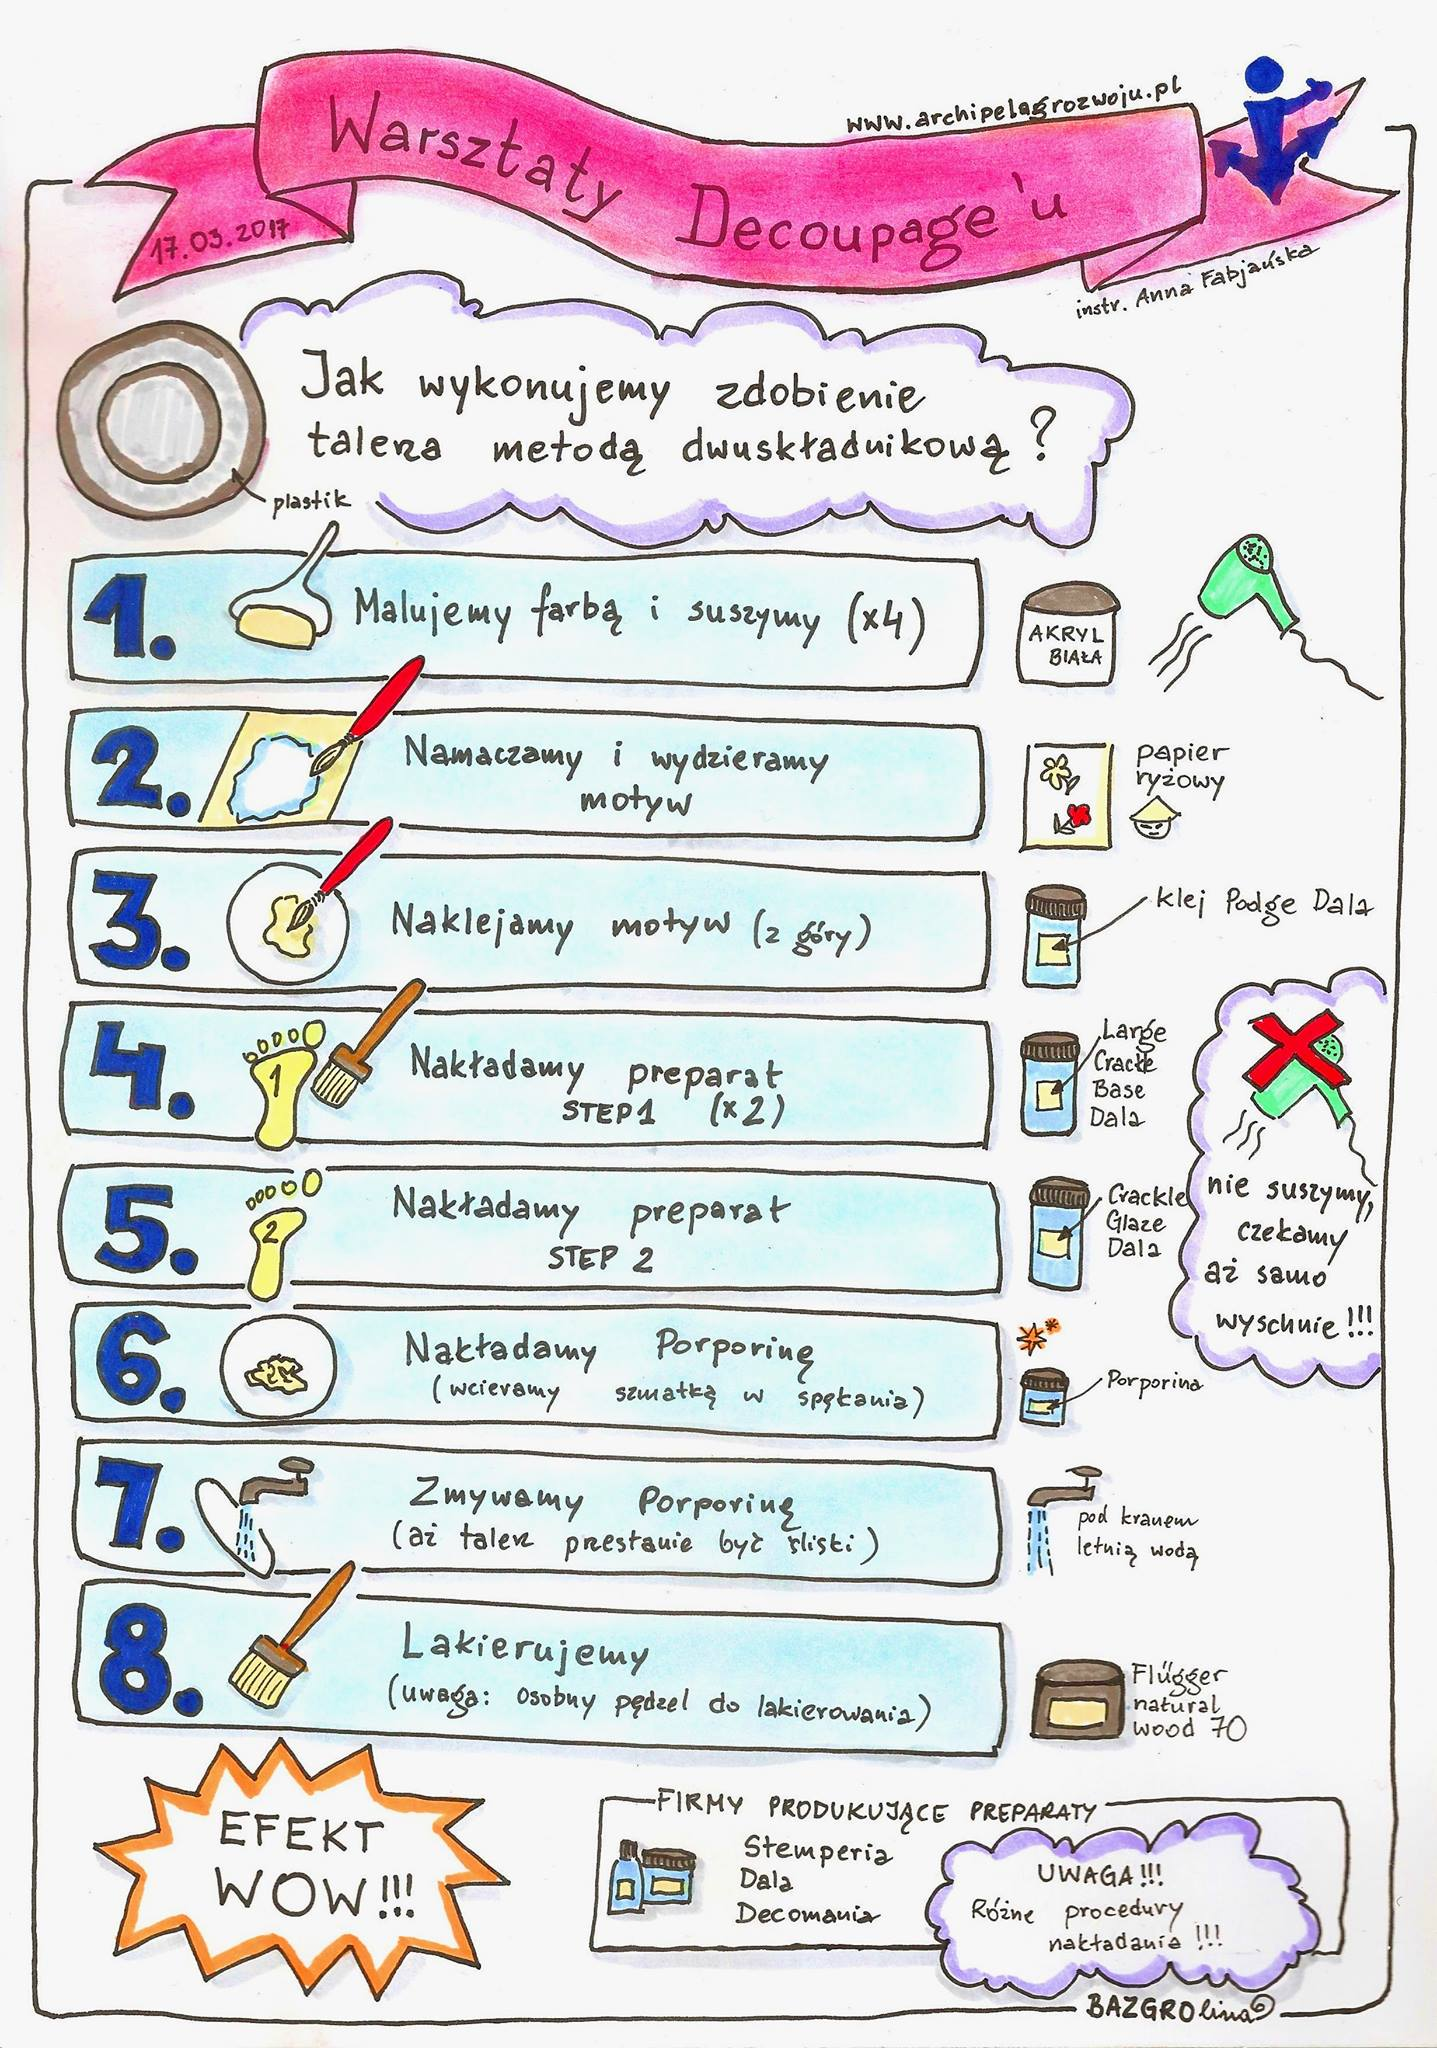 www.archipelagrozwoju.pl
Warsztaty Decoupage'u
17.03.2017
instr. Anna Fabjańska
Jak wykonujemy zdobienie
talerza metodą dwuskładnikową?
plastik
1. Malujemy farbą i suszymy (x4)
AKRYL
BIAŁA
2. Namaczamy i wydzieramy
motyw
papier
ryżowy
3. Naklejamy motyw (z góry)
klej Podge Dala
4. 1 Nakładamy preparat
STEP 1 (x2)
Large
Crackle
Base
Dala
5. 2 Nakładamy preparat
STEP 2
Crackle
Glaze
Dala
nie suszymy,
czekamy
aż samo
wyschnie!!!
6. Nakładamy Porporinę
(wcieramy szmatką w spękania)
Porporina
7. Zmywamy Porporinę
(aż talerz przestanie być śliski)
pod kranem
letnią wodą
8. Lakierujemy
(uwaga: osobny pędzel do lakierowania)
Flügger
natural
wood 70
EFEKT
WOW!!!
FIRMY PRODUKUJĄCE PREPARATY
Stemperia
Dala
Decomania
UWAGA!!!
Różne procedury
nakładania!!!
BAZGROlina